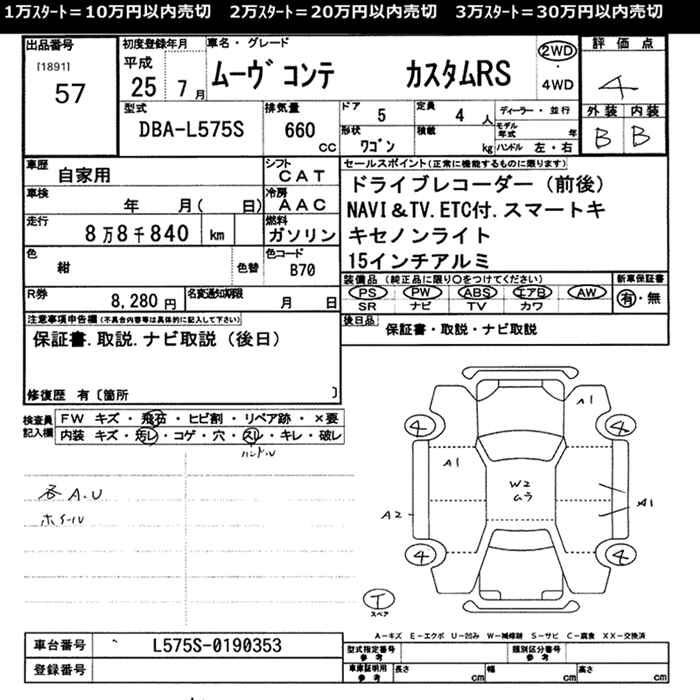 1万スタート＝10万円以内売切　2万スタート＝20万円以内売切　3万スタート＝30万円以内売切
出品番号
[1891]
57
初度登録年月
平成
25 7月
車名・グレード
ムーヴ コンテ カスタムRS
2WD
・
4WD
評価点
4
外装 内装
B B
型式
DBA-L575S
排気量
660
CC
ドア
5
定員
4 人
形状
ワゴン
積載
kg
ディーラー・並行
モデル年式 年
ハンドル 左・右
車歴
自家用
シフト
CAT
車検
年 月( 日)
冷房
AAC
走行
8万8千840 km
燃料
ガソリン
色
紺
色替
色コード
B70
R券
8,280 円
名変通知期限
月 日
セールスポイント(正常に機能するものに限ります)
ドライブレコーダー（前後）
NAVI＆TV.ETC付.スマートキ
キセノンライト
15インチアルミ
装備品（純正品に限り〇をつけてください）
PS PW ABS エアB AW
SR ナビ TV カワ
新車保証書
有・無
後日品
保証書・取説・ナビ取説
注意事項申告欄(不具合内容等は具体的に記入して下さい)
保証書.取説.ナビ取説（後日）
修復歴 有〔箇所 〕
検査員記入欄
FW キズ・飛石・ヒビ割・リペア跡・×要
内装 キズ・汚レ・コゲ・穴・スレ・キレ・破レ
ハンドル
各A.U
ホイール
4 4
A1
A1
W2
ムラ
A1
A2
4 4
T
スペア
A－キズ E－エクボ U－凹み W－補修跡 S－サビ C－腐食 XX－交換済
車台番号
L575S-0190353
登録番号
型式指定番号
参考
類別区分番号
参考
車庫証明用
参考
長さ cm
幅 cm
高さ cm